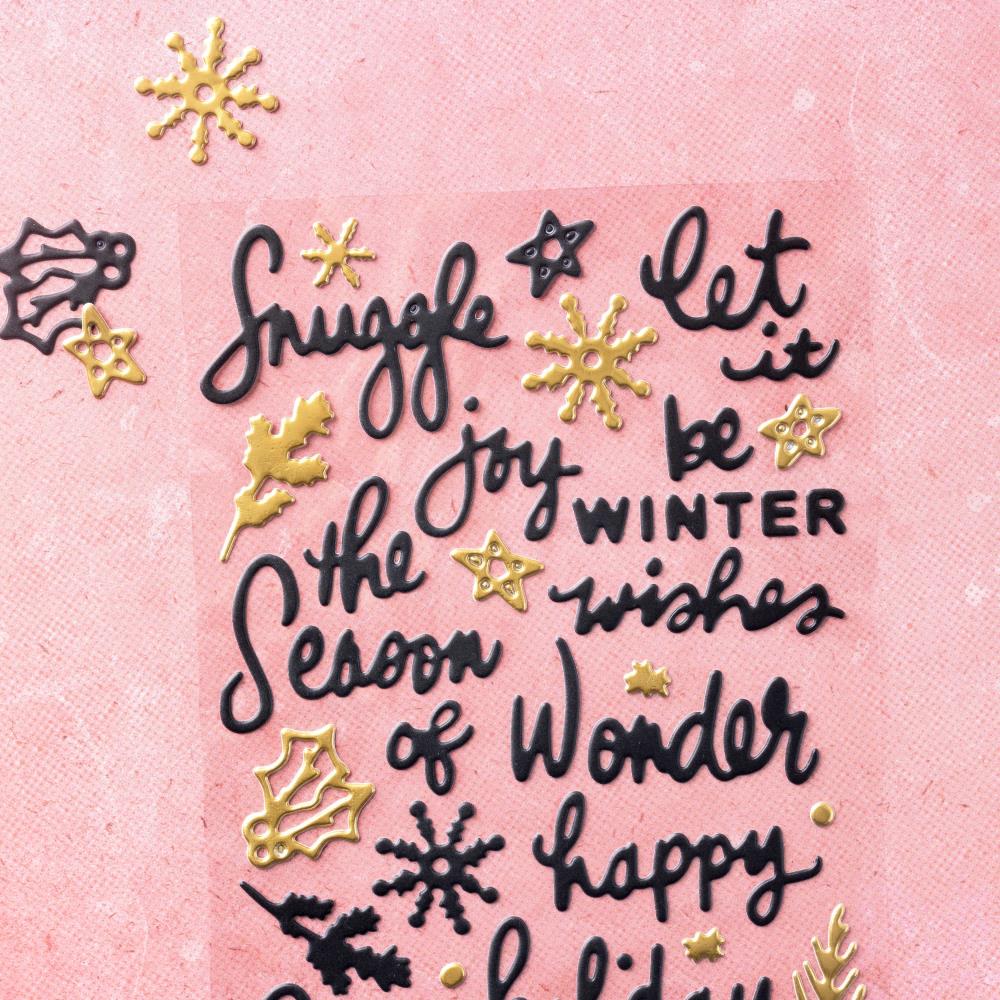 Snuggle
let
it
be
joy
WINTER
wishes
the
Season
of
Wonder
happy
holiday